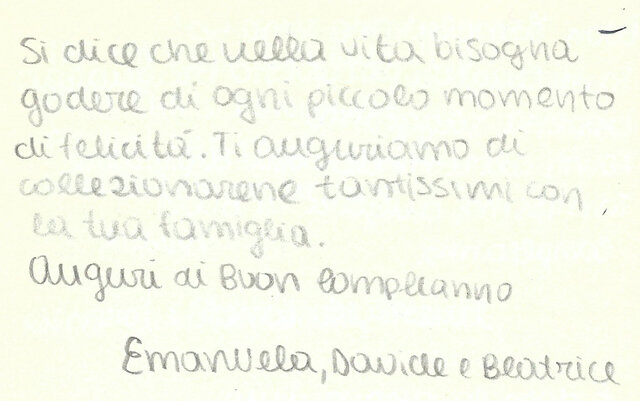 Si dice che nella vita bisogna
godere di ogni piccolo momento
di felicità. Ti auguriamo di
collezionarene tantissimi con
la tua famiglia.
Auguri di Buon compleanno
Emanuela, Davide e Beatrice